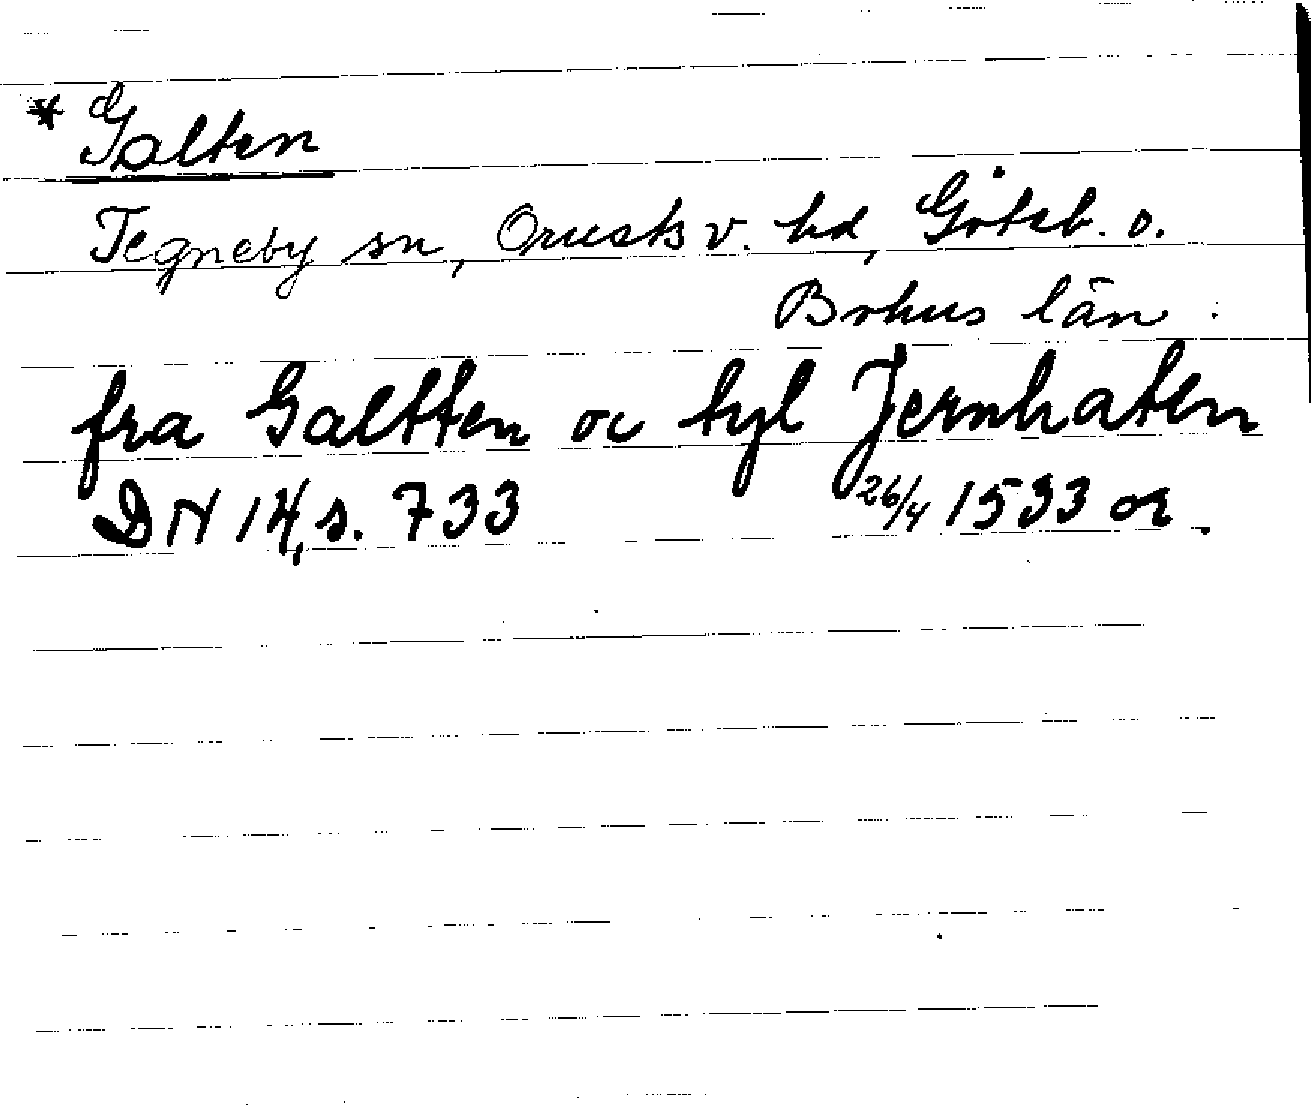 * Galten
Tegneby sn, Orusts v. hd, Göteb. o.
Bohus län.
fra Galtten oc tyl Jernhaten
DN 14, s. 733 26/4 1533 or.